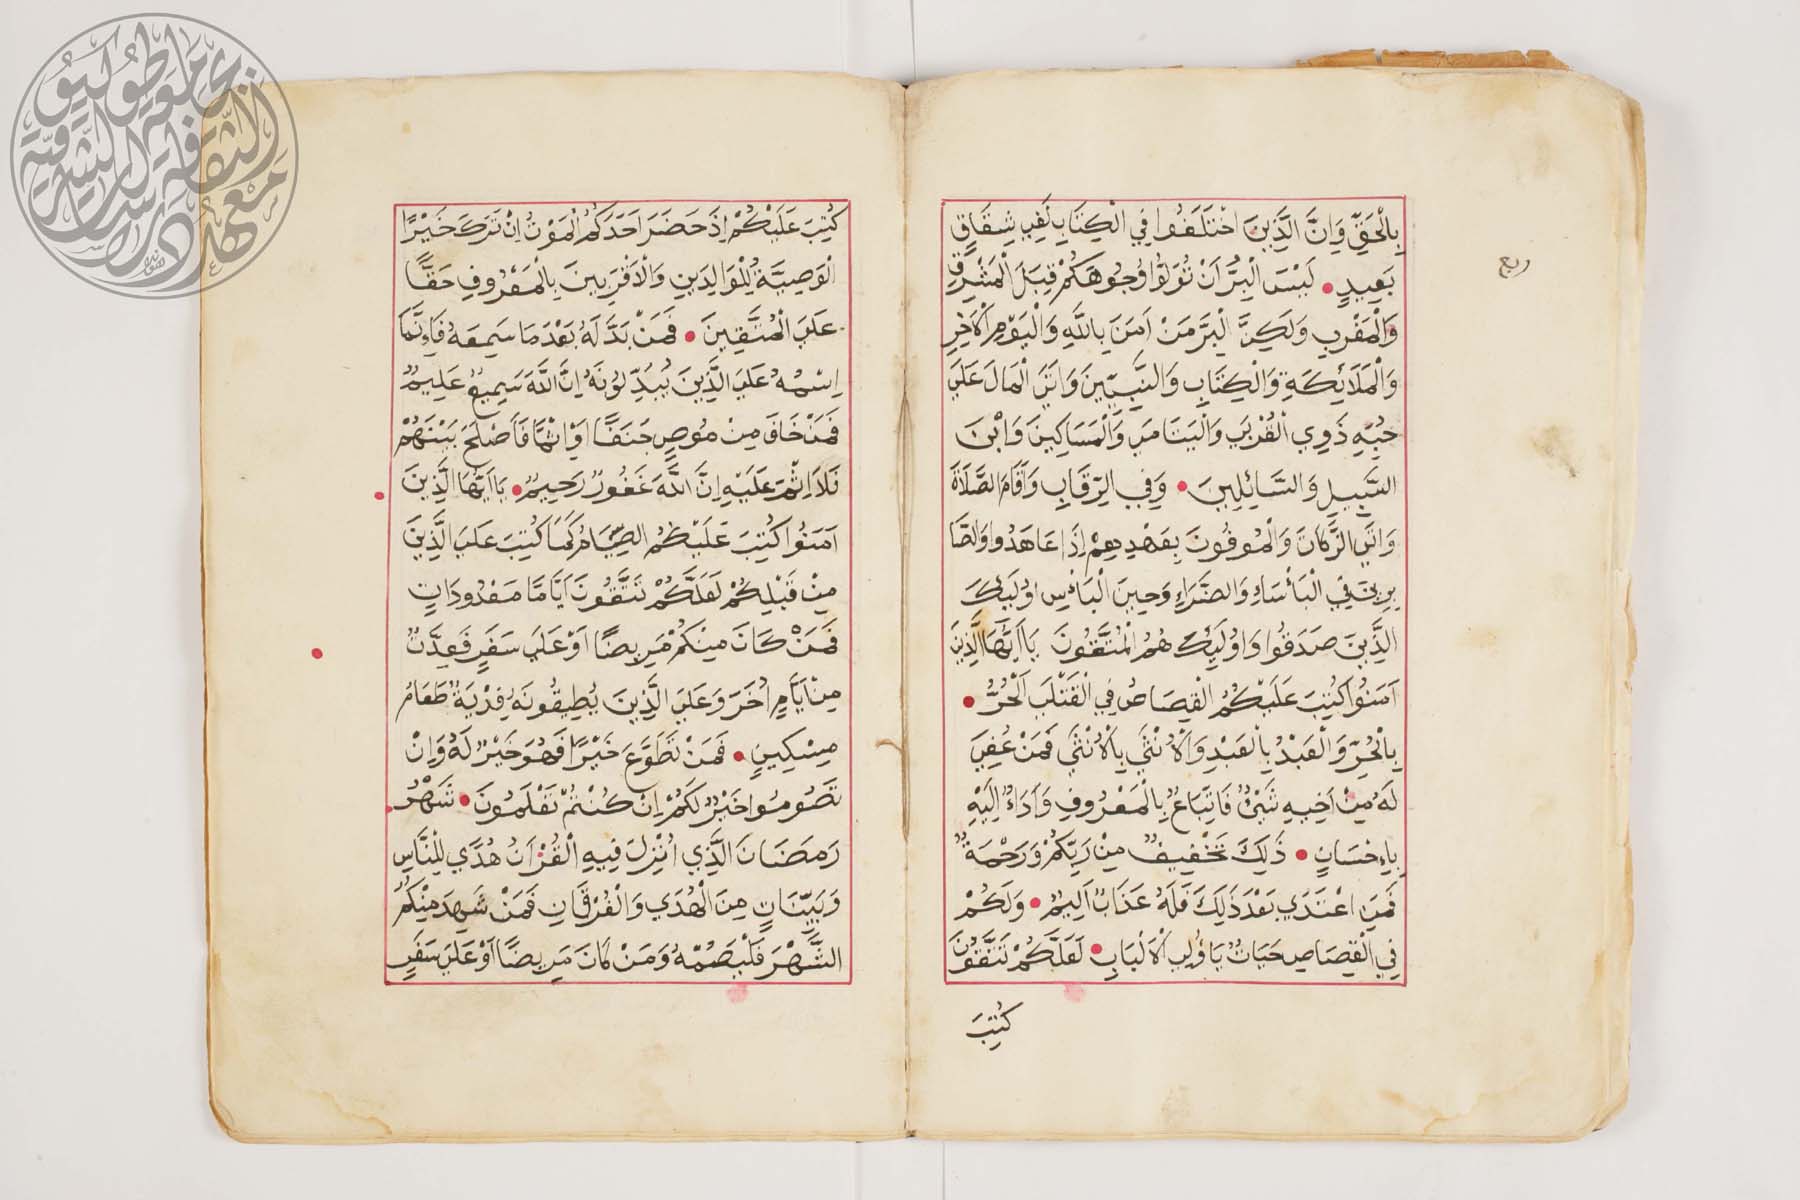 بِالْحَقِّ وَاِنَّ الَّذِينَ اخْتَلَفُوا فِي الْكِتَابِ لَفِي شِقَاقٍ
بَعِيدٍ لَيْسَ الْبِرُّ اَنْ تُوَلُّوا وُجُوهَكُمْ قِبَلَ الْمَشْرِقِ
وَالْمَغْرِبِ وَلَكِنَّ الْبِرَّ مَنْ اَمَنَ بِاللَّهِ وَالْيَوْمِ الْاَخِرِ
وَالْمَلَائِكَةِ وَالْكِتَابِ وَالنَّبِيِّينَ وَاتَى الْمَالَ عَلَى
حُبِّهِ ذَوِي الْقُرْبَى وَالْيَتَامَى وَالْمَسَاكِينَ وَابْنَ
السَّبِيلِ وَالسَّائِلِينَ وَفِي الرِّقَابِ وَاَقَامَ الصَّلَاةَ
وَاتَى الزَّكَاتَ وَالْمُوفُونَ بِعَهْدِهِمْ اِذَا عَاهَدُوا وَالصَّا
بِرِينَ فِي الْبَأْسَاءِ وَالضَّرَّاءِ وَحِينَ الْبَأْسِ اُولَئِكَ
الَّذِينَ صَدَقُوا وَاُولَئِكَ هُمُ الْمُتَّقُونَ يَا اَيُّهَا الَّذِينَ
اَمَنُوا كُتِبَ عَلَيْكُمُ الْقِصَاصُ فِي الْقَتْلَى اَلْحُرُّ
بِالْحُرِّ وَالْعَبْدُ بِالْعَبْدِ وَالْاُنْثَى بِالْاُنْثَى فَمَنْ عُفِيَ
لَهُ مِنْ اَخِيهِ شَيْءٌ فَاتِّبَاعٌ بِالْمَعْرُوفِ وَاَدَاءٌ اِلَيْهِ
بِاِحْسَانٍ ذَلِكَ تَخْفِيفٌ مِنْ رَبِّكُمْ وَرَحْمَةٌ
فَمَنِ اعْتَدَى بَعْدَ ذَلِكَ فَلَهُ عَذَابٌ اَلِيمٌ وَلَكُمْ
فِي الْقِصَاصِ حَيَاتٌ يَا اُولِي الْاَلْبَابِ لَعَلَّكُمْ تَتَّقُونَ
كُتِبَ
ربع
كُتِبَ عَلَيْكُمْ اِذَا حَضَرَ اَحَدَكُمُ الْمَوْتُ اِنْ تَرَكَ خَيْرًا
الْوَصِيَّةُ لِلْوَالِدَيْنِ وَالْاَقْرَبِينَ بِالْمَعْرُوفِ حَقًّا
عَلَى الْمُتَّقِينَ فَمَنْ بَدَّلَهُ بَعْدَمَا سَمِعَهُ فَاِنَّمَا
اِسْمُهُ عَلَى الَّذِينَ يُبَدِّلُونَهُ اِنَّ اللَّهَ سَمِيعٌ عَلِيمٌ
فَمَنْ خَافَ مِنْ مُوصٍ جَنَفًا اَوْ اِثْمًا فَاَصْلَحَ بَيْنَهُمْ
فَلَا اِثْمَ عَلَيْهِ اِنَّ اللَّهَ غَفُورٌ رَحِيمٌ يَا اَيُّهَا الَّذِينَ
اَمَنُوا كُتِبَ عَلَيْكُمُ الصِّيَامُ كَمَا كُتِبَ عَلَى الَّذِينَ
مِنْ قَبْلِكُمْ لَعَلَّكُمْ تَتَّقُونَ اَيَّامًا مَعْدُودَاتٍ
فَمَنْ كَانَ مِنْكُمْ مَرِيضًا اَوْ عَلَى سَفَرٍ فَعِدَّتٌ
مِنْ اَيَّامٍ اُخَرَ وَعَلَى الَّذِينَ يُطِيقُونَهُ فِدْيَةٌ طَعَامُ
مِسْكِينٍ فَمَنْ تَطَوَّعَ خَيْرًا فَهُوَ خَيْرٌ لَهُ وَاِنْ
تَصُومُوا خَيْرٌ لَكُمْ اِنْ كُنْتُمْ تَعْلَمُونَ شَهْرُ
رَمَضَانَ الَّذِي اُنْزِلَ فِيهِ الْقُرْاَنُ هُدًي لِلنَّاسِ
وَبَيِّنَاتٍ مِنَ الْهُدَي وَالْفُرْقَانِ فَمَنْ شَهِدَ مِنْكُمُ
الشَّهْرَ فَلْيَصُمْهُ وَمَنْ كَانَ مَرِيضًا اَوْ عَلَى سَفَرٍ